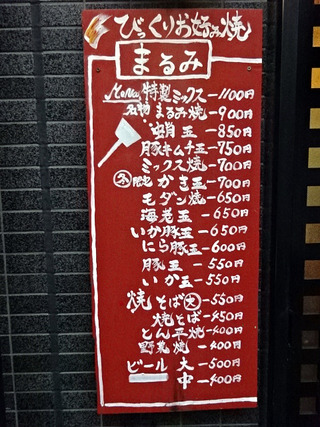 びっくりお好み焼
まるみ
Menu 特製ミックス－1100円
名物 まるみ焼－900円
蛸玉－850円
豚キムチ玉－750円
ミックス焼－700円
かき玉－700円
モダン焼－650円
海老玉－650円
いか豚玉－650円
にら豚玉－600円
豚玉－550円
いか玉－550円
焼そば大－550円
焼そば－450円
とん平焼－400円
野菜焼－400円
ビール 大－500円
中－400円